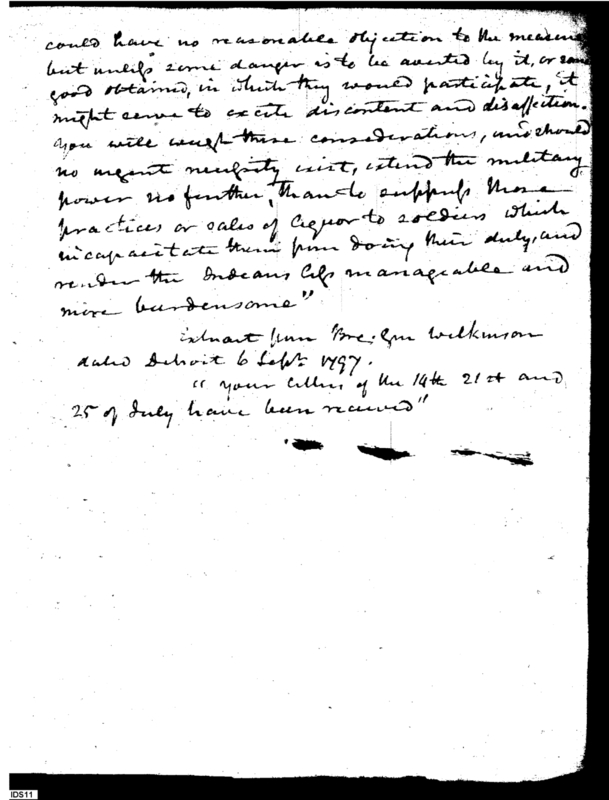 could have no reasonable objection to the measure
but unless some danger is to be averted by it, or some
good obtained, in which they would participate, it
might serve to excite discontent and disaffection.
You will weigh these considerations, and should
no urgent necessity exist, extend the military
power no further, than to suppress those
practices or sales of liquor to soldiers which
incapacitate them from doing their duty, and
render the Indians less manageable and
more burdensome"
Extract from Bre: Gen Wilkinson
dated Detroit 6 Septr 1797.
" Your letters of the 14th 21st and
25 of July have been received"
IDS11